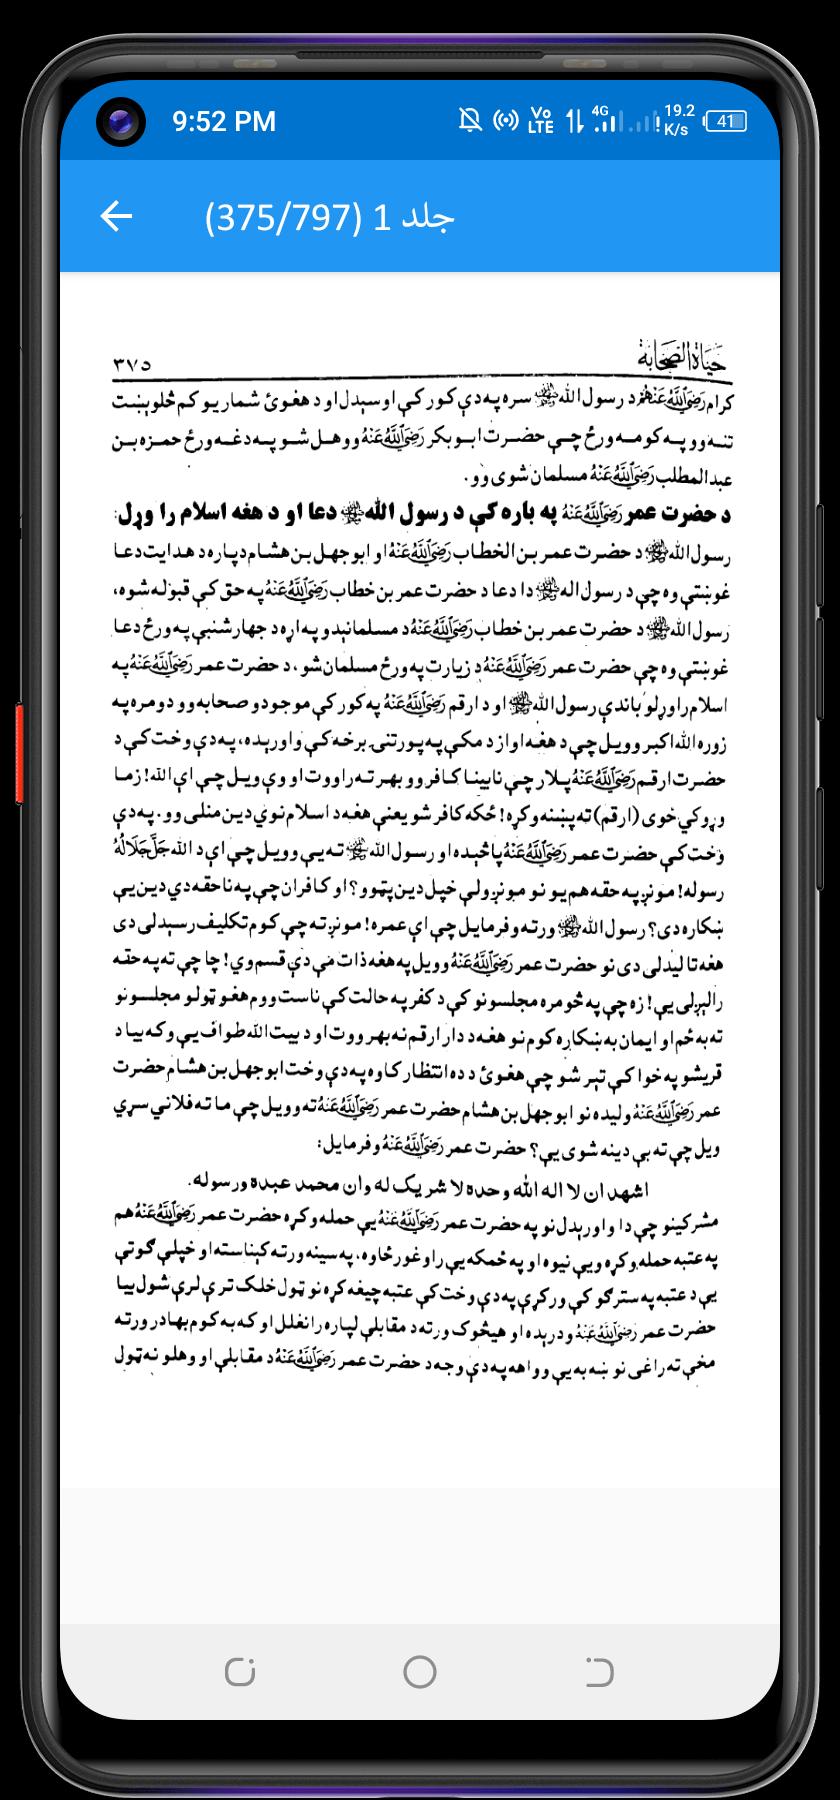 9:52 PM
Vo LTE 4G 19.2 K/s 41
جلد 1 (375/797)
حياة الصحابة
٣٧٥
کرام رَضِيَ اللهُ عَنْهُمْ د رسول الله ﷺ سره په دې کور کې اوسېدل او د هغوئ شمار يو کم څلوېښت
تنه وو په کومه ورځ چې حضرت ابوبکر رَضِيَ اللهُ عَنْهُ ووهل شو په دغه ورځ حمزه بن
عبدالمطلب رَضِيَ اللهُ عَنْهُ مسلمان شوی وو.
د حضرت عمر رَضِيَ اللهُ عَنْهُ په باره کې د رسول الله ﷺ دعا او د هغه اسلام را وړل:
رسول الله ﷺ د حضرت عمر بن الخطاب رَضِيَ اللهُ عَنْهُ او ابوجهل بن هشام دپاره د هدايت دعا
غوښتې وه چې د رسول اله ﷺ دا دعا د حضرت عمر بن خطاب رَضِيَ اللهُ عَنْهُ په حق کې قبوله شوه،
رسول الله ﷺ د حضرت عمر بن خطاب رَضِيَ اللهُ عَنْهُ د مسلمانېدو په اړه د چهارشنبې په ورځ دعا
غوښتې وه چې حضرت عمر رَضِيَ اللهُ عَنْهُ د زيارت په ورځ مسلمان شو، د حضرت عمر رَضِيَ اللهُ عَنْهُ په
اسلام راوړلو باندې رسول الله ﷺ او د ارقم رَضِيَ اللهُ عَنْهُ په کور کې موجودو صحابه وو دومره په
زوره الله اکبر وويل چې د هغه اواز د مکې په پورتنۍ برخه کې واورېده، په دې وخت کې د
حضرت ارقم رَضِيَ اللهُ عَنْهُ پلار چې نابينا کافر وو بهر ته راووت او وې ويل چې اې الله! زما
وړوکي خوی (ارقم) ته بښنه وکړه! ځکه کافر شو يعنې هغه د اسلام نوي دين منلی وو. په دې
وخت کې حضرت عمر رَضِيَ اللهُ عَنْهُ پاڅېده او رسول الله ﷺ ته يې وويل چې اې د الله جَلَّ جَلَالُهُ
رسوله! مونږ په حقه هم يو نو مونږ ولې خپل دين پټوو؟ او کافران چې په ناحقه دي دين يې
ښکاره دی؟ رسول الله ﷺ ورته وفرمايل چې اې عمره! مونږ ته چې کوم تکليف رسېدلی دی
هغه تا ليدلی دی نو حضرت عمر رَضِيَ اللهُ عَنْهُ وويل په هغه ذات مې دې قسم وي! چا چې ته په حقه
رالېږلی يې! زه چې په څومره مجلسونو کې د کفر په حالت کې ناست ووم هغو ټولو مجلسونو
ته به ځم او ايمان به ښکاره کوم نو هغه د دار ارقم نه بهر ووت او د بيت الله طواف يې وکه بيا د
قريشو په خوا کې تېر شو چې هغوئ د ده انتظار کاوه په دې وخت ابوجهل بن هشام حضرت
عمر رَضِيَ اللهُ عَنْهُ وليده نو ابوجهل بن هشام حضرت عمر رَضِيَ اللهُ عَنْهُ ته وويل چې ما ته فلاني سړي
ويل چې ته بې دينه شوی يې؟ حضرت عمر رَضِيَ اللهُ عَنْهُ وفرمايل:
اشهد ان لا اله الله وحده لا شریک له وان محمد عبده ورسوله.
مشرکينو چې دا واورېدل نو په حضرت عمر رَضِيَ اللهُ عَنْهُ يې حمله وکړه حضرت عمر رَضِيَ اللهُ عَنْهُ هم
په عتبه حمله وکړه ويې نيوه او په ځمکه يې راوغورځاوه، په سينه ورته کېناسته او خپلې ګوتې
يې د عتبه په سترګو کې ورکړې په دې وخت کې عتبه چيغه کړه نو ټول خلک ترې لرې شول بيا
حضرت عمر رَضِيَ اللهُ عَنْهُ ودرېده او هيڅوک ورته د مقابلې لپاره رانغلل او که به کوم بهادر ورته
مخې ته راغی نو ښه به يې وواهه په دې وجه د حضرت عمر رَضِيَ اللهُ عَنْهُ د مقابلې او وهلو نه ټول